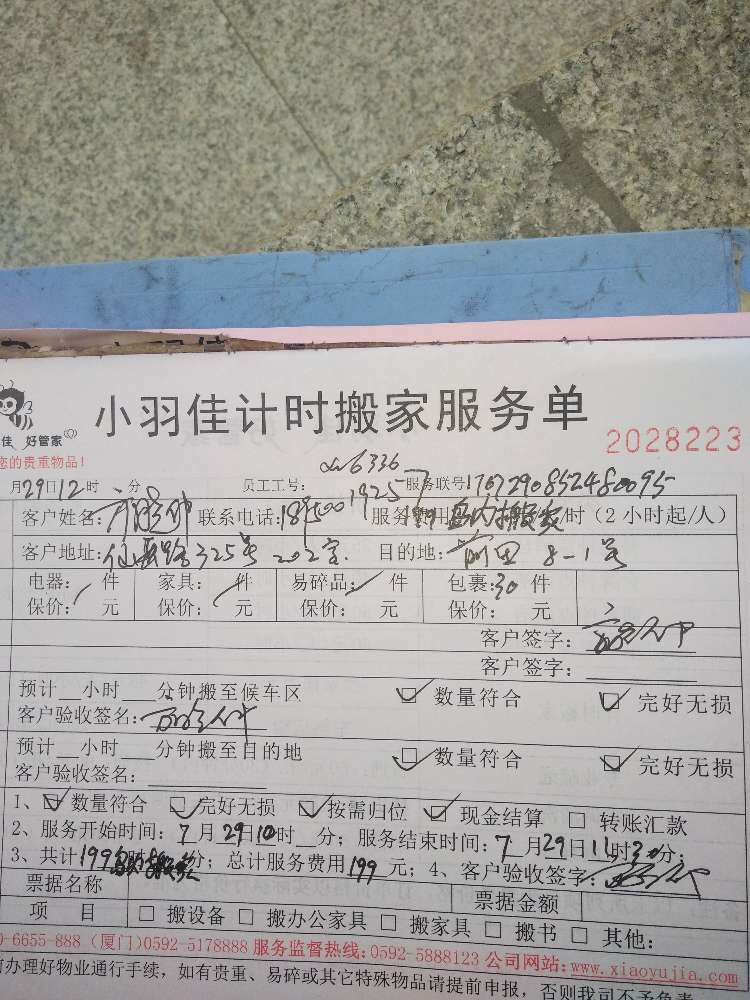 小羽佳计时搬家服务单
佳 好管家
2028223
您的贵重物品!
月29日12时 分 员工工号: 6336 服务联号:
客户姓名: 联系电话: 服务费用 岛内搬家/时(2小时起/人)
客户地址: 路325号202室 目的地: 前田8-1号
电器: 件 家具: 件 易碎品: 件 包裹:30件
保价: 元 保价: 元 保价: 元 保价: 元
客户签字:
客户签字:
预计 小时 分钟搬至候车区 数量符合 完好无损
客户验收签名:
预计 小时 分钟搬至目的地 数量符合 完好无损
客户验收签名:
1、数量符合 完好无损 按需归位 现金结算 转账汇款
2、服务开始时间:7月29日10时 分;服务结束时间:7月29日11时30分;
3、共计199岛内搬家分;总计服务费用199元;4、客户验收签字:
票据名称 票据金额
项 目 搬设备 搬办公家具 搬家具 搬书 其他:
0-6655-888 (厦门)0592-5178888 服务监督热线:0592-5888123 公司网站:www.xiaoyujia.com
前办理好物业通行手续,如有贵重、易碎或其它特殊物品请提前申报,否则我司不予负责